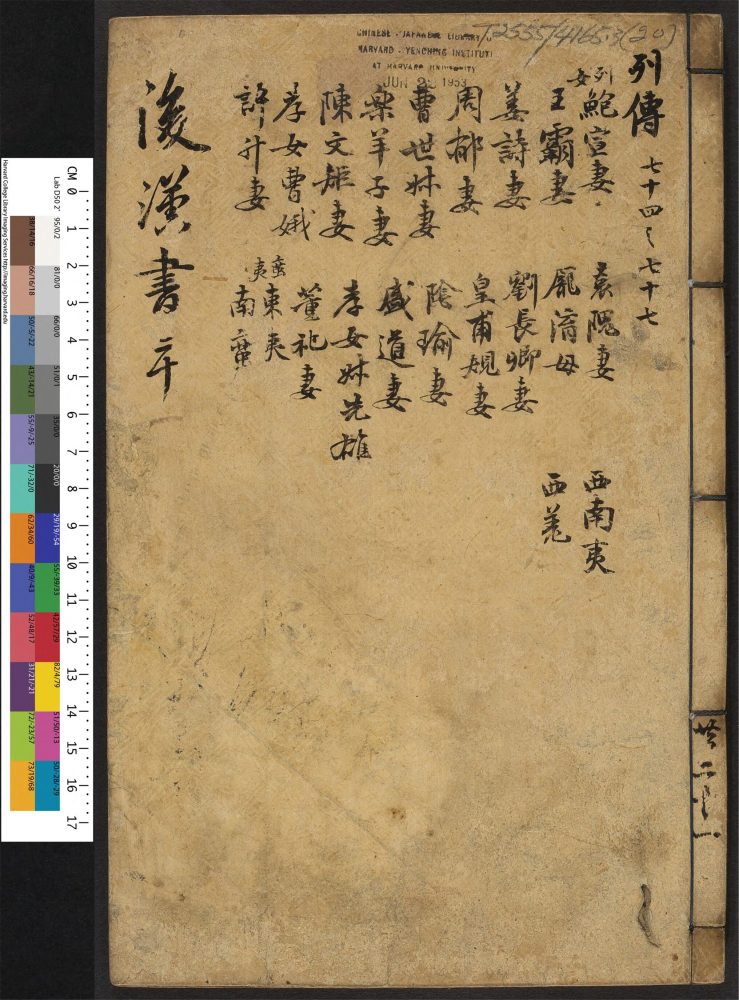 CHINESE - JAPANESE LIBRARY
HARVARD - YENCHING INSTITUTE
AT HARVARD UNIVERSITY
T 2555/4165.3 (20)
列傳 七十四之七十七
列女
鮑宣妻
王霸妻
姜詩妻
周郁妻
曹世叔妻
樂羊子妻
陳文矩妻
孝女曹娥
許升妻
袁隗妻
龐淯母
劉長卿妻
皇甫規妻
陰瑜妻
盛道妻
孝女叔先雄
董祀妻
蠻夷
東夷
南蠻
西南夷
西羌
後漢書 二十
CM 0 1 2 3 4 5 6 7 8 9 10 11 12 13 14 15 16 17
Harvard College Library Imaging Services http://imaging.harvard.edu